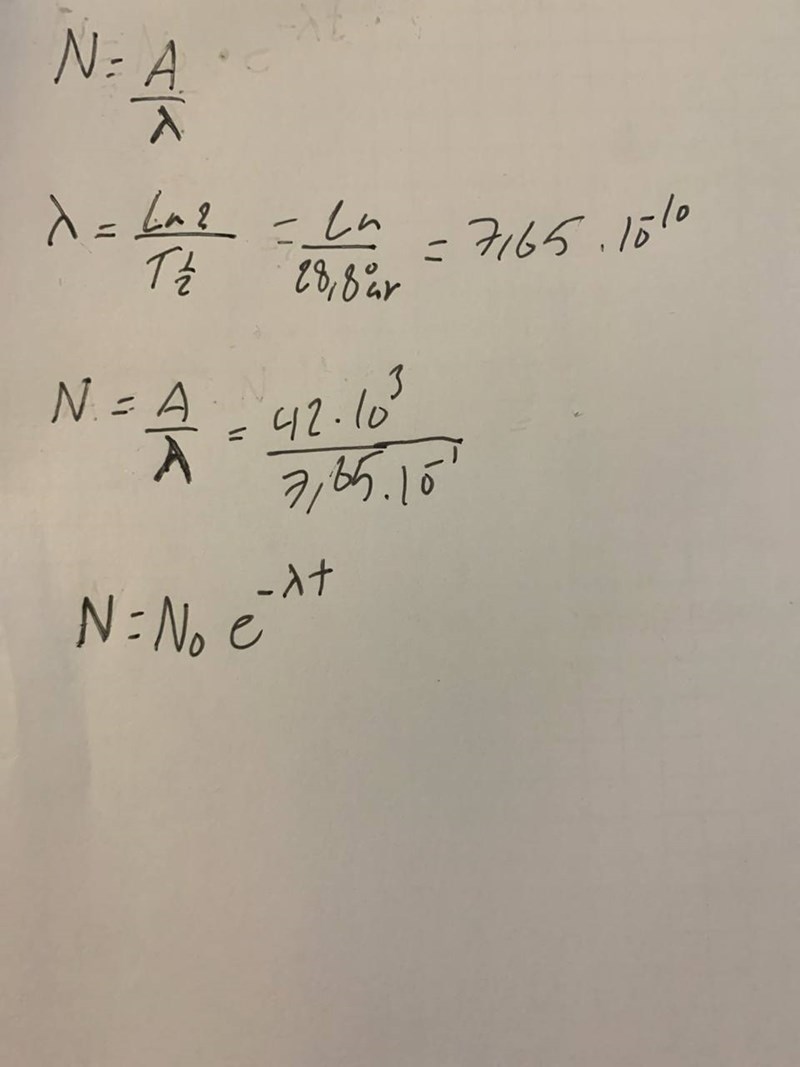 N = A/λ
λ = Ln 2/T½ = Ln/28,8 år = 7,65 · 10^-10
N = A/λ = 42 · 10^3/7,65 · 10^-1
N = N₀ e^-λt